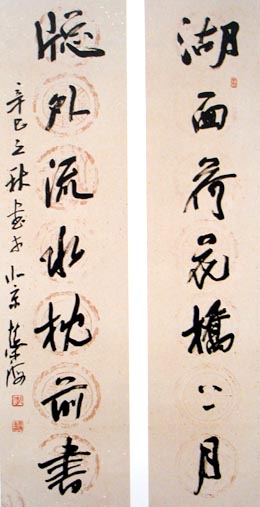 湖面荷花橋上月
牕外流水枕前書
辛巳之秋書于北京